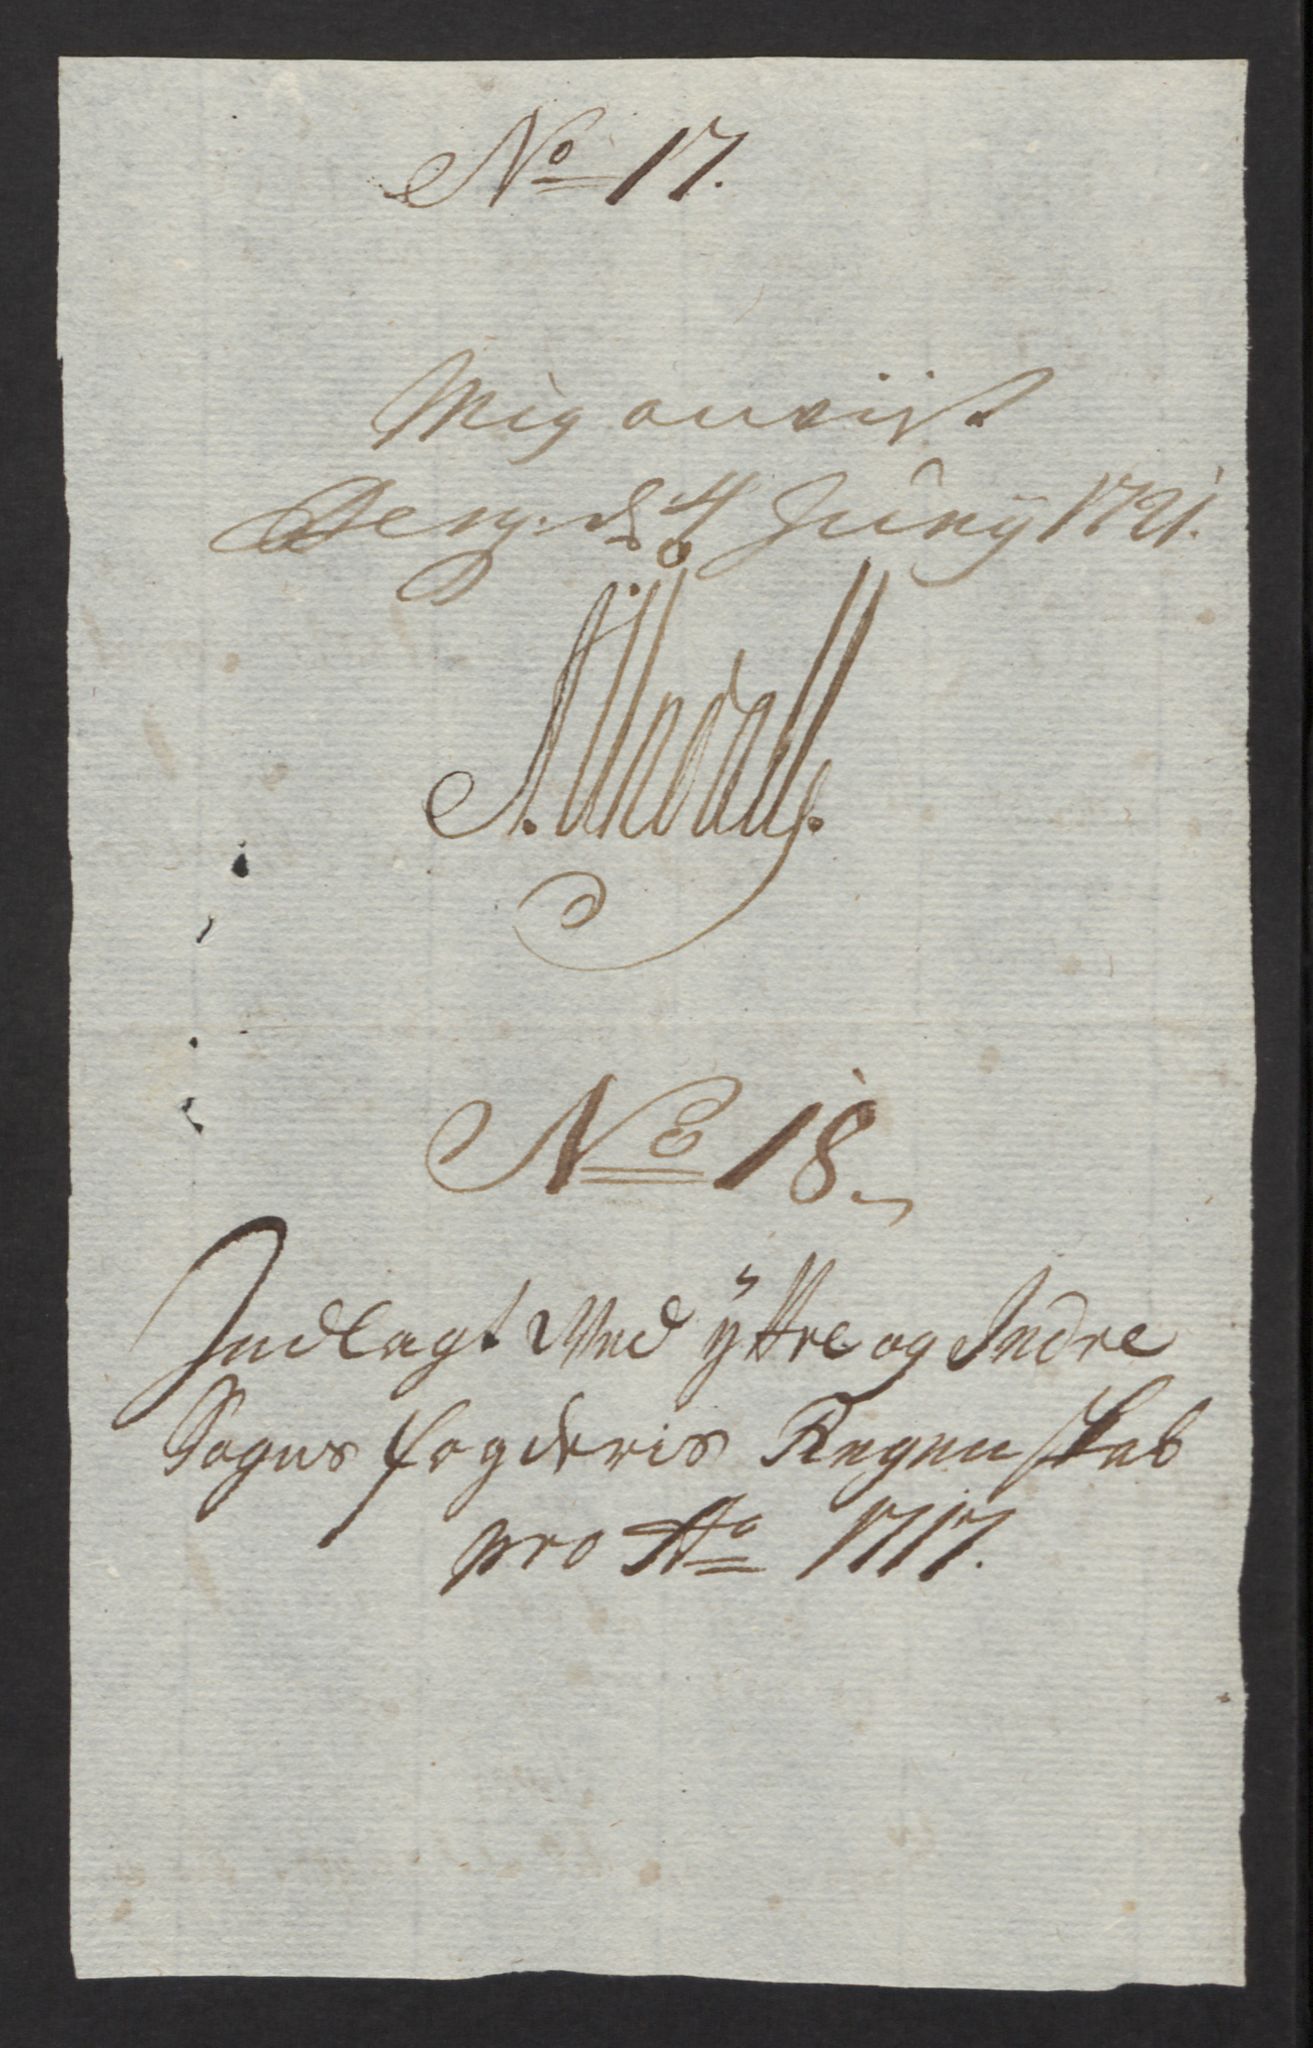 No 17.
Mig anviist
Berg. d 4 Juny 1721.
No 18.
Indlagt Med ÿttre og Indre
Sogns fogderis Regenskab
pro Ao 1717.